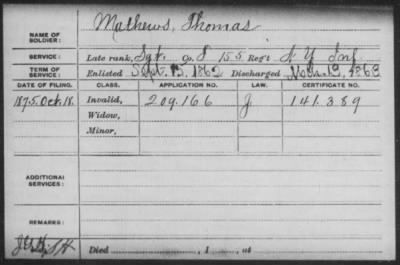 Mathews, Thomas
NAME OF SOLDIER:
SERVICE: Late rank, Sgt. Co. I 155 Reg't N. Y. Inf.
TERM OF SERVICE: Enlisted Sept. 13, 1862 Discharged 13, 1863
DATE OF FILING. CLASS. APPLICATION NO. LAW. CERTIFICATE NO.
1875. Oct. 18. Invalid, 209.166 J 141.389
Widow,
Minor,
ADDITIONAL SERVICES:
REMARKS:
Died , 1 , at